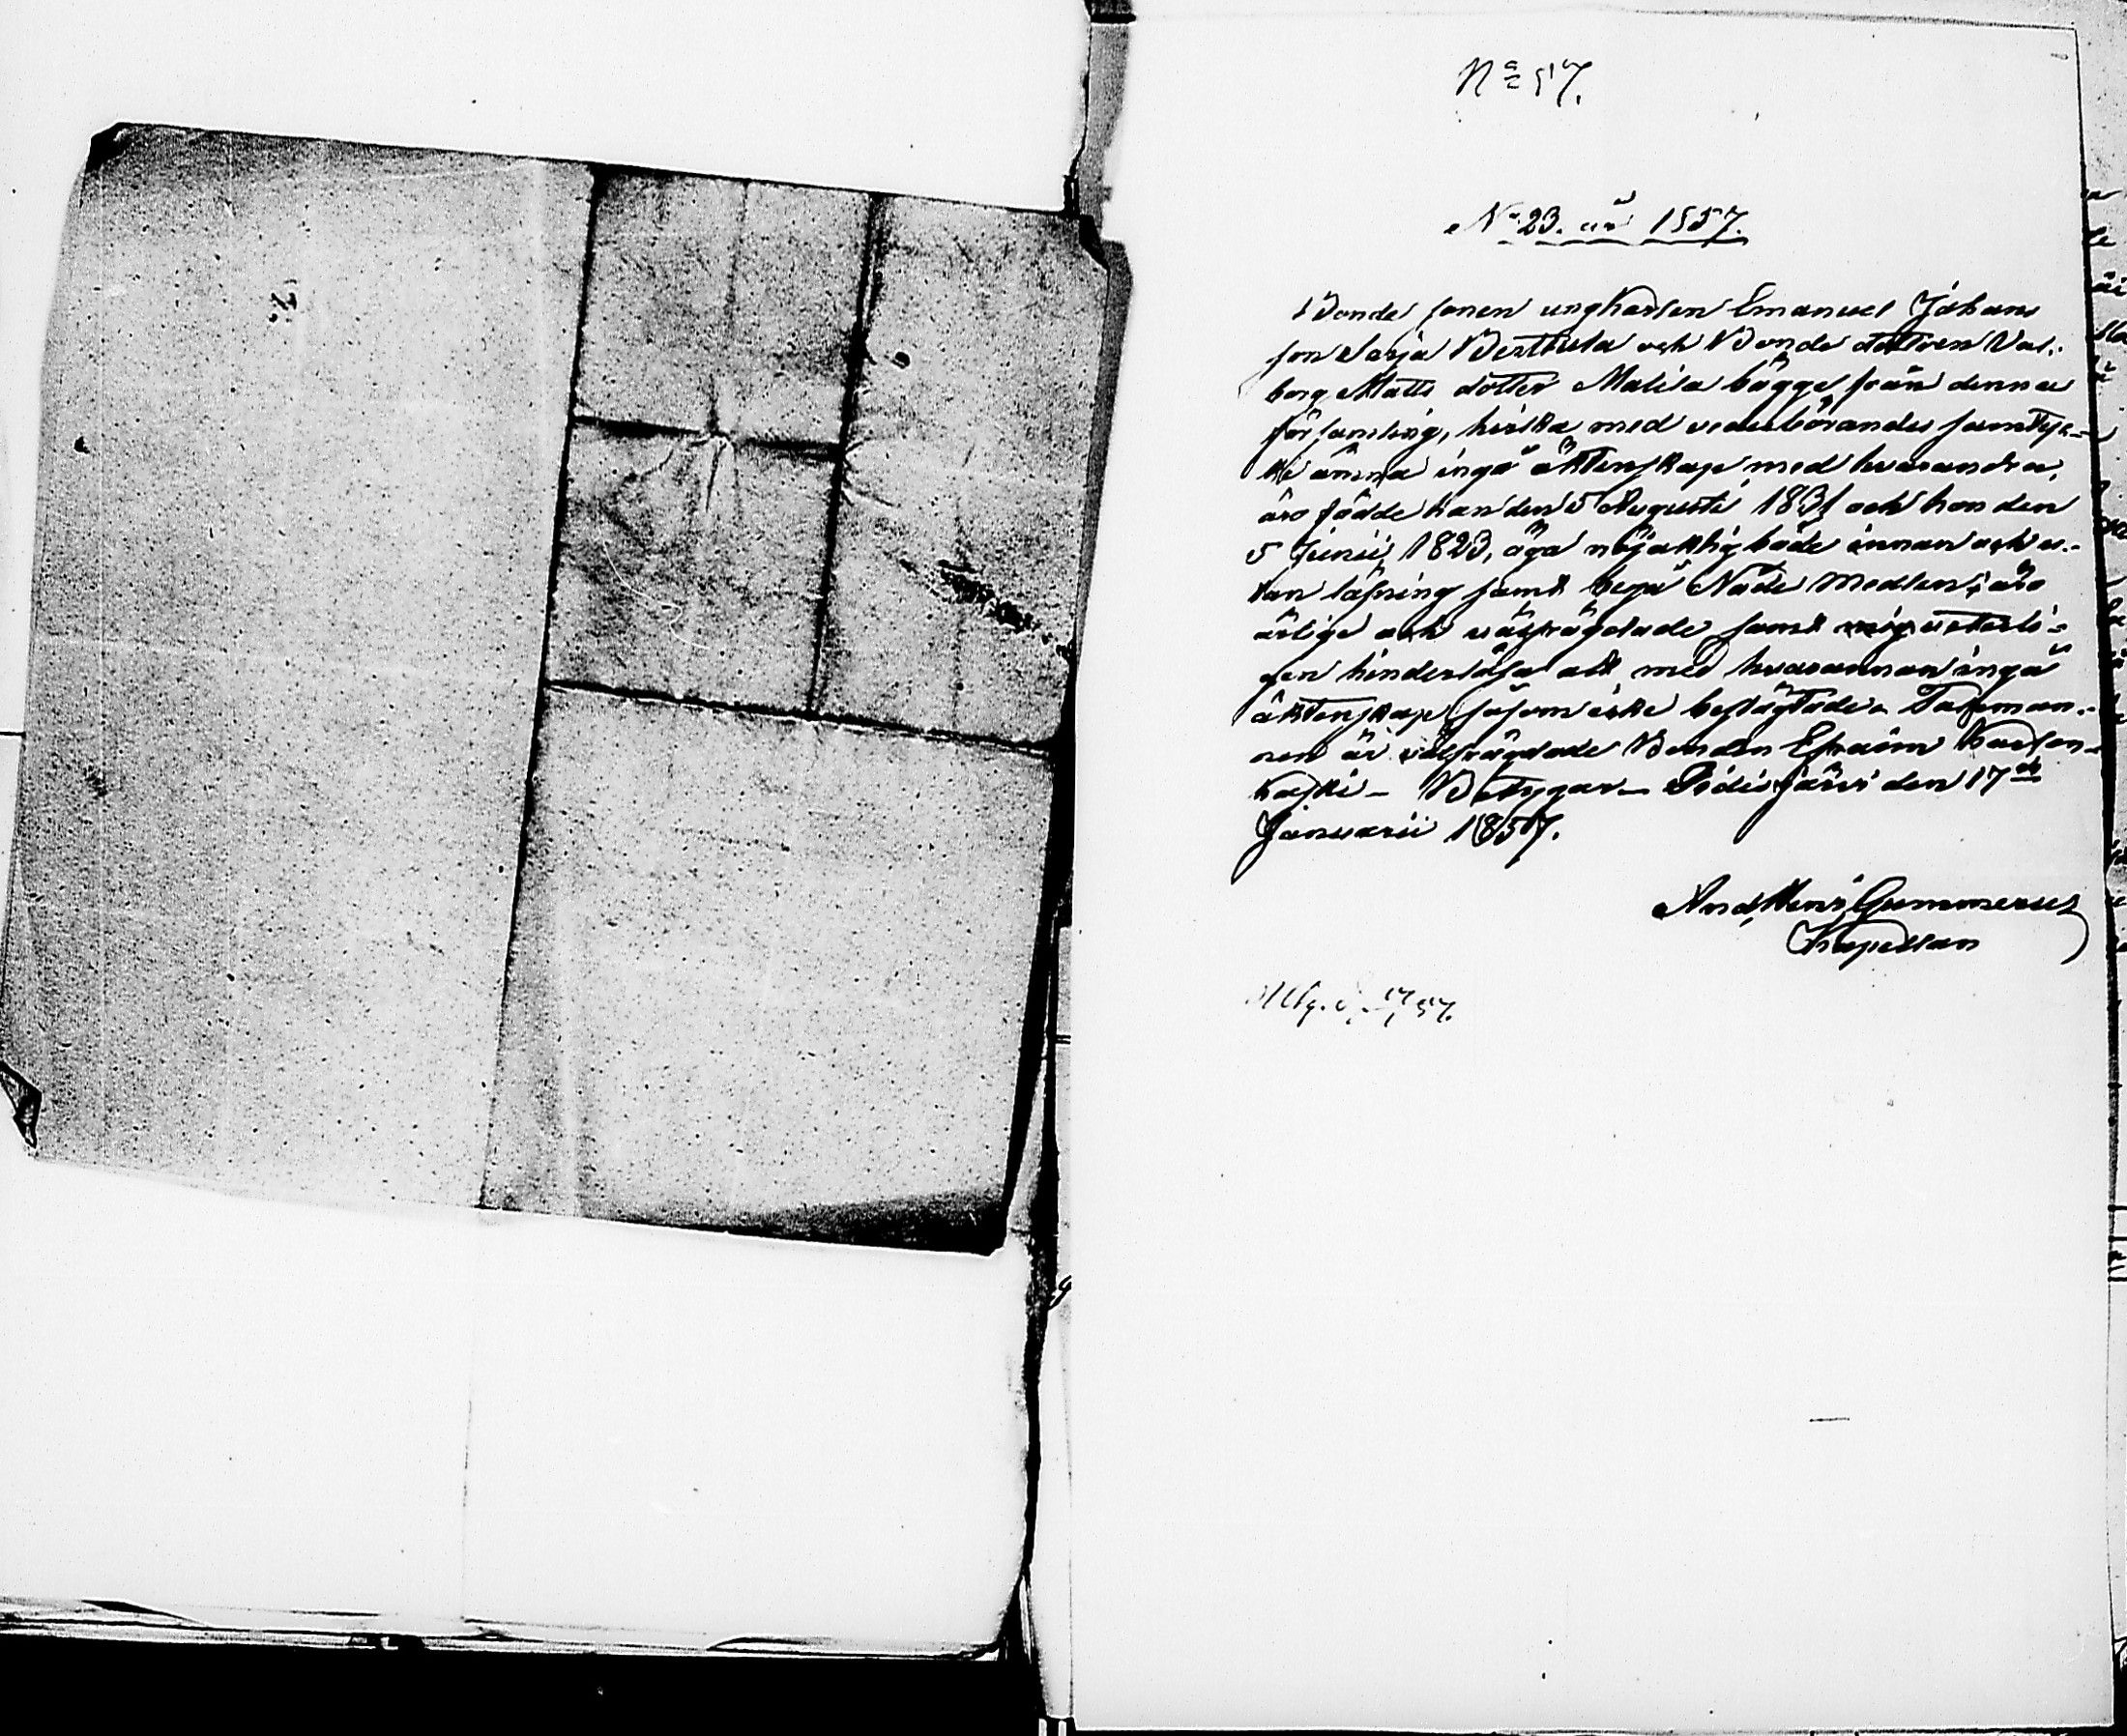 No 57.
No 23. år 1857.
Bonde sonen ungkarlen Emanuel Johans
son Sarja Berttula och Bonde dottren Val-
borg Matts dotter Malila bägge från denna
församling, hvilka med vederbörandes samtyc-
ke ämna ingå äktenskap med hvarandra,
äro födde han den 5 Augusti 1831 och hon den
5 Junii 1823, äga nöjaktig både innan och u-
tan läsning samt begå Nåde medlen; äro
ärlige och välfrägdade samt
gen hinderlösa att med hvarannan ingå
äktenskap såsom icke beslägtade. Taleman-
nen är välfrägdade Bonden Efraim Karlen-
kaski - Betygar - Pidisjärvi den 17de
Januarii 1857.
And, Henr, Gummerus
Kapellan